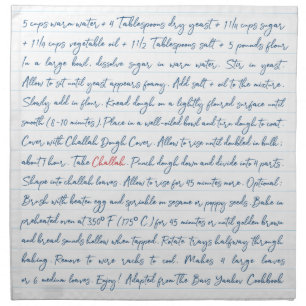 5 cups warm water + 4 Tablespoons dry yeast + 1 1/4 cups sugar
+ 1 1/4 cups vegetable oil + 1 1/2 Tablespoons salt + 5 pounds flour
In a large bowl, dissolve sugar in warm water. Stir in yeast.
Allow to sit until yeast appears foamy. Add salt + oil to the mixture.
Slowly add in flour. Knead dough on a lightly floured surface until
smooth (8-10 minutes). Place in a well-oiled bowl and turn dough to coat.
Cover with Challah Dough Cover. Allow to rise until doubled in bulk;
about 1 hour. Take Challah. Punch dough down and divide into 4 parts.
Shape into challah loaves. Allow to rise for 45 minutes more. Optional:
Brush with beaten egg and sprinkle on sesame or poppy seeds. Bake in
preheated oven at 350° F (175° C) for 45 minutes or until golden brown
and bread sounds hollow when tapped. Rotate trays halfway through
baking. Remove to wire racks to cool. Makes 4 large loaves
or 6 medium loaves. Enjoy! Adapted from The Bais Yaakov Cookbook